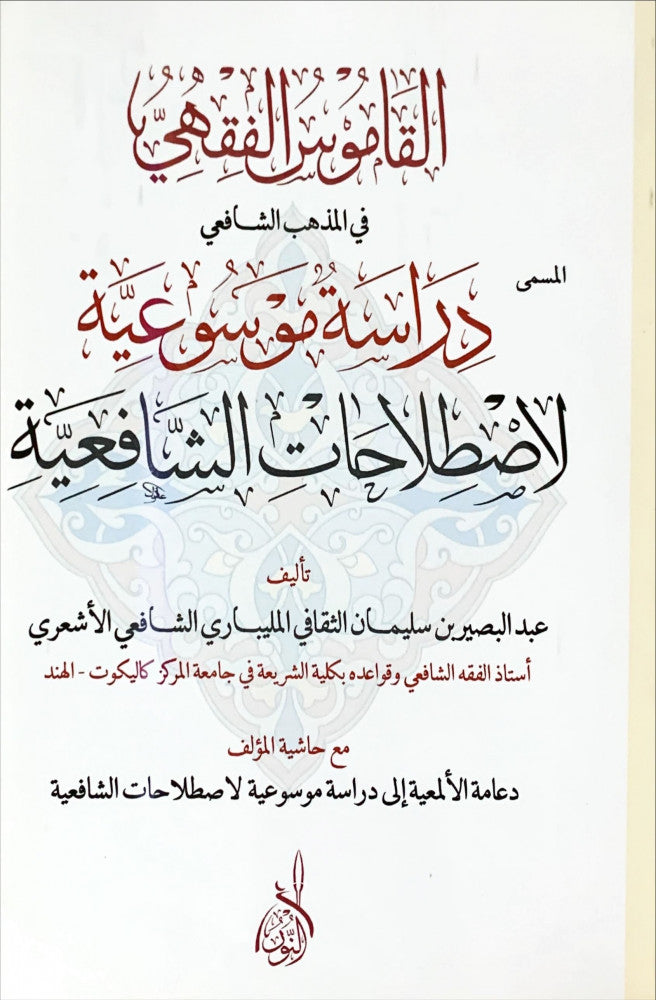 القَامُوسُ الفِقْهِيُّ
في المذهب الشافعي
المسمى
دِرَاسَةٌ مَوْسُوعِيَّة
لِاصْطِلَاحَاتِ الشَّافِعِيَّةِ
تأليف
عبد البصير بن سليمان الثقافي المليباري الشافعي الأشعري
أستاذ الفقه الشافعي وقواعده بكلية الشريعة في جامعة المركز كاليكوت - الهند
مع حاشية المؤلف
دعامة الألمعية إلى دراسة موسوعية لاصطلاحات الشافعية
النُّور